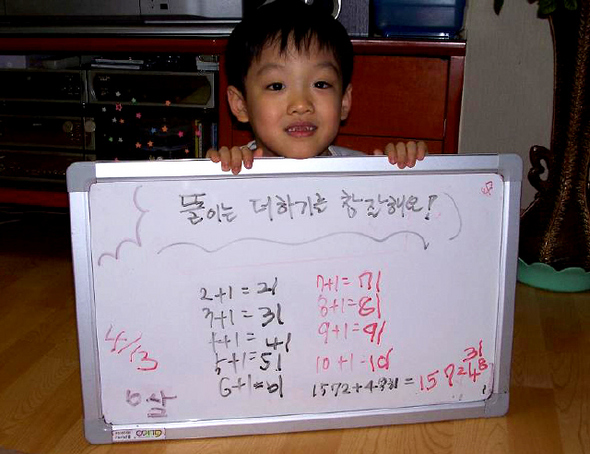 똘이는 더하기를 참 잘해요!
2+1=21
3+1=31
4+1=41
5+1=51
6+1=61
7+1=71
8+1=81
9+1=91
10+1=101
1572+4831=15724831
4/13
6살